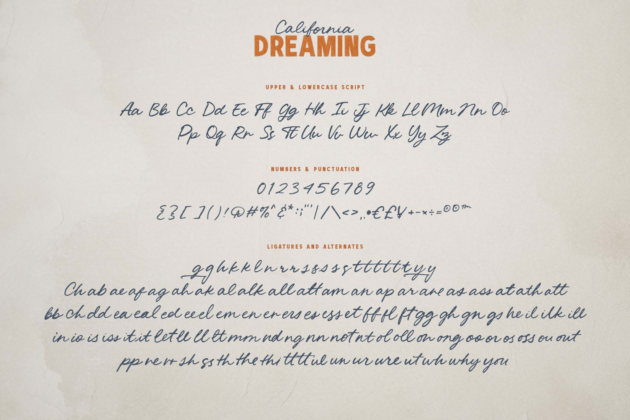 California
DREAMING
UPPER & LOWERCASE SCRIPT
Aa Bb Cc Dd Ee Ff Gg Hh Ii Jj Kk Ll Mm Nn Oo
Pp Qq Rr Ss Tt Uu Vv Ww Xx Yy Zz
NUMBERS & PUNCTUATION
0123456789
{}[]()!@#%^&*:;"'|/\<>,.•€£¥+-×÷=©®™
LIGATURES AND ALTERNATES
g g h k k l n r r s s s s s t t t t t t y y
Ch ab ae af ag ah ak al alk all att am an ap ar are as ass at ath att
bb ch dd ea eal ed ee el em en er ers es ess et ff fl ft gg gh gn gs he il ilk ill
in io is iss it it let le ll lt mm nd ng nn not nt ol oll on ong oo or os oss ou out
pp re rr sh ss th the thi tt tt ul un ur ure ut wh why you